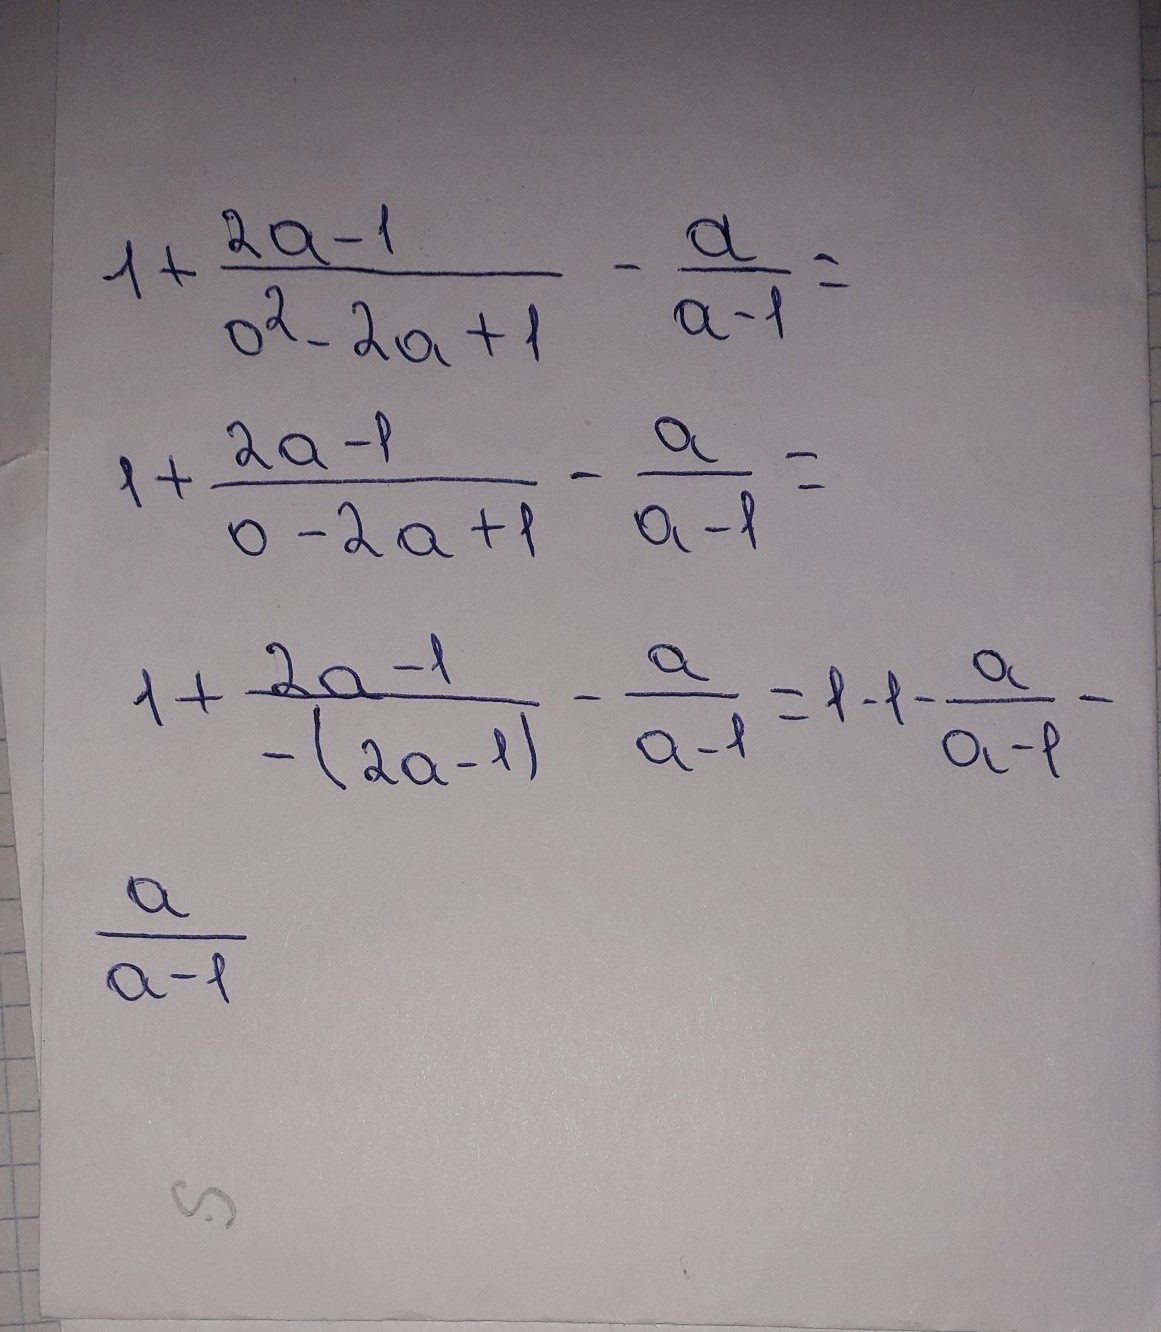 1 + \frac{2a-1}{0^2-2a+1} - \frac{a}{a-1} =
1 + \frac{2a-1}{0-2a+1} - \frac{a}{a-1} =
1 + \frac{2a-1}{-(2a-1)} - \frac{a}{a-1} = 1-1-\frac{a}{a-1} -
\frac{a}{a-1}